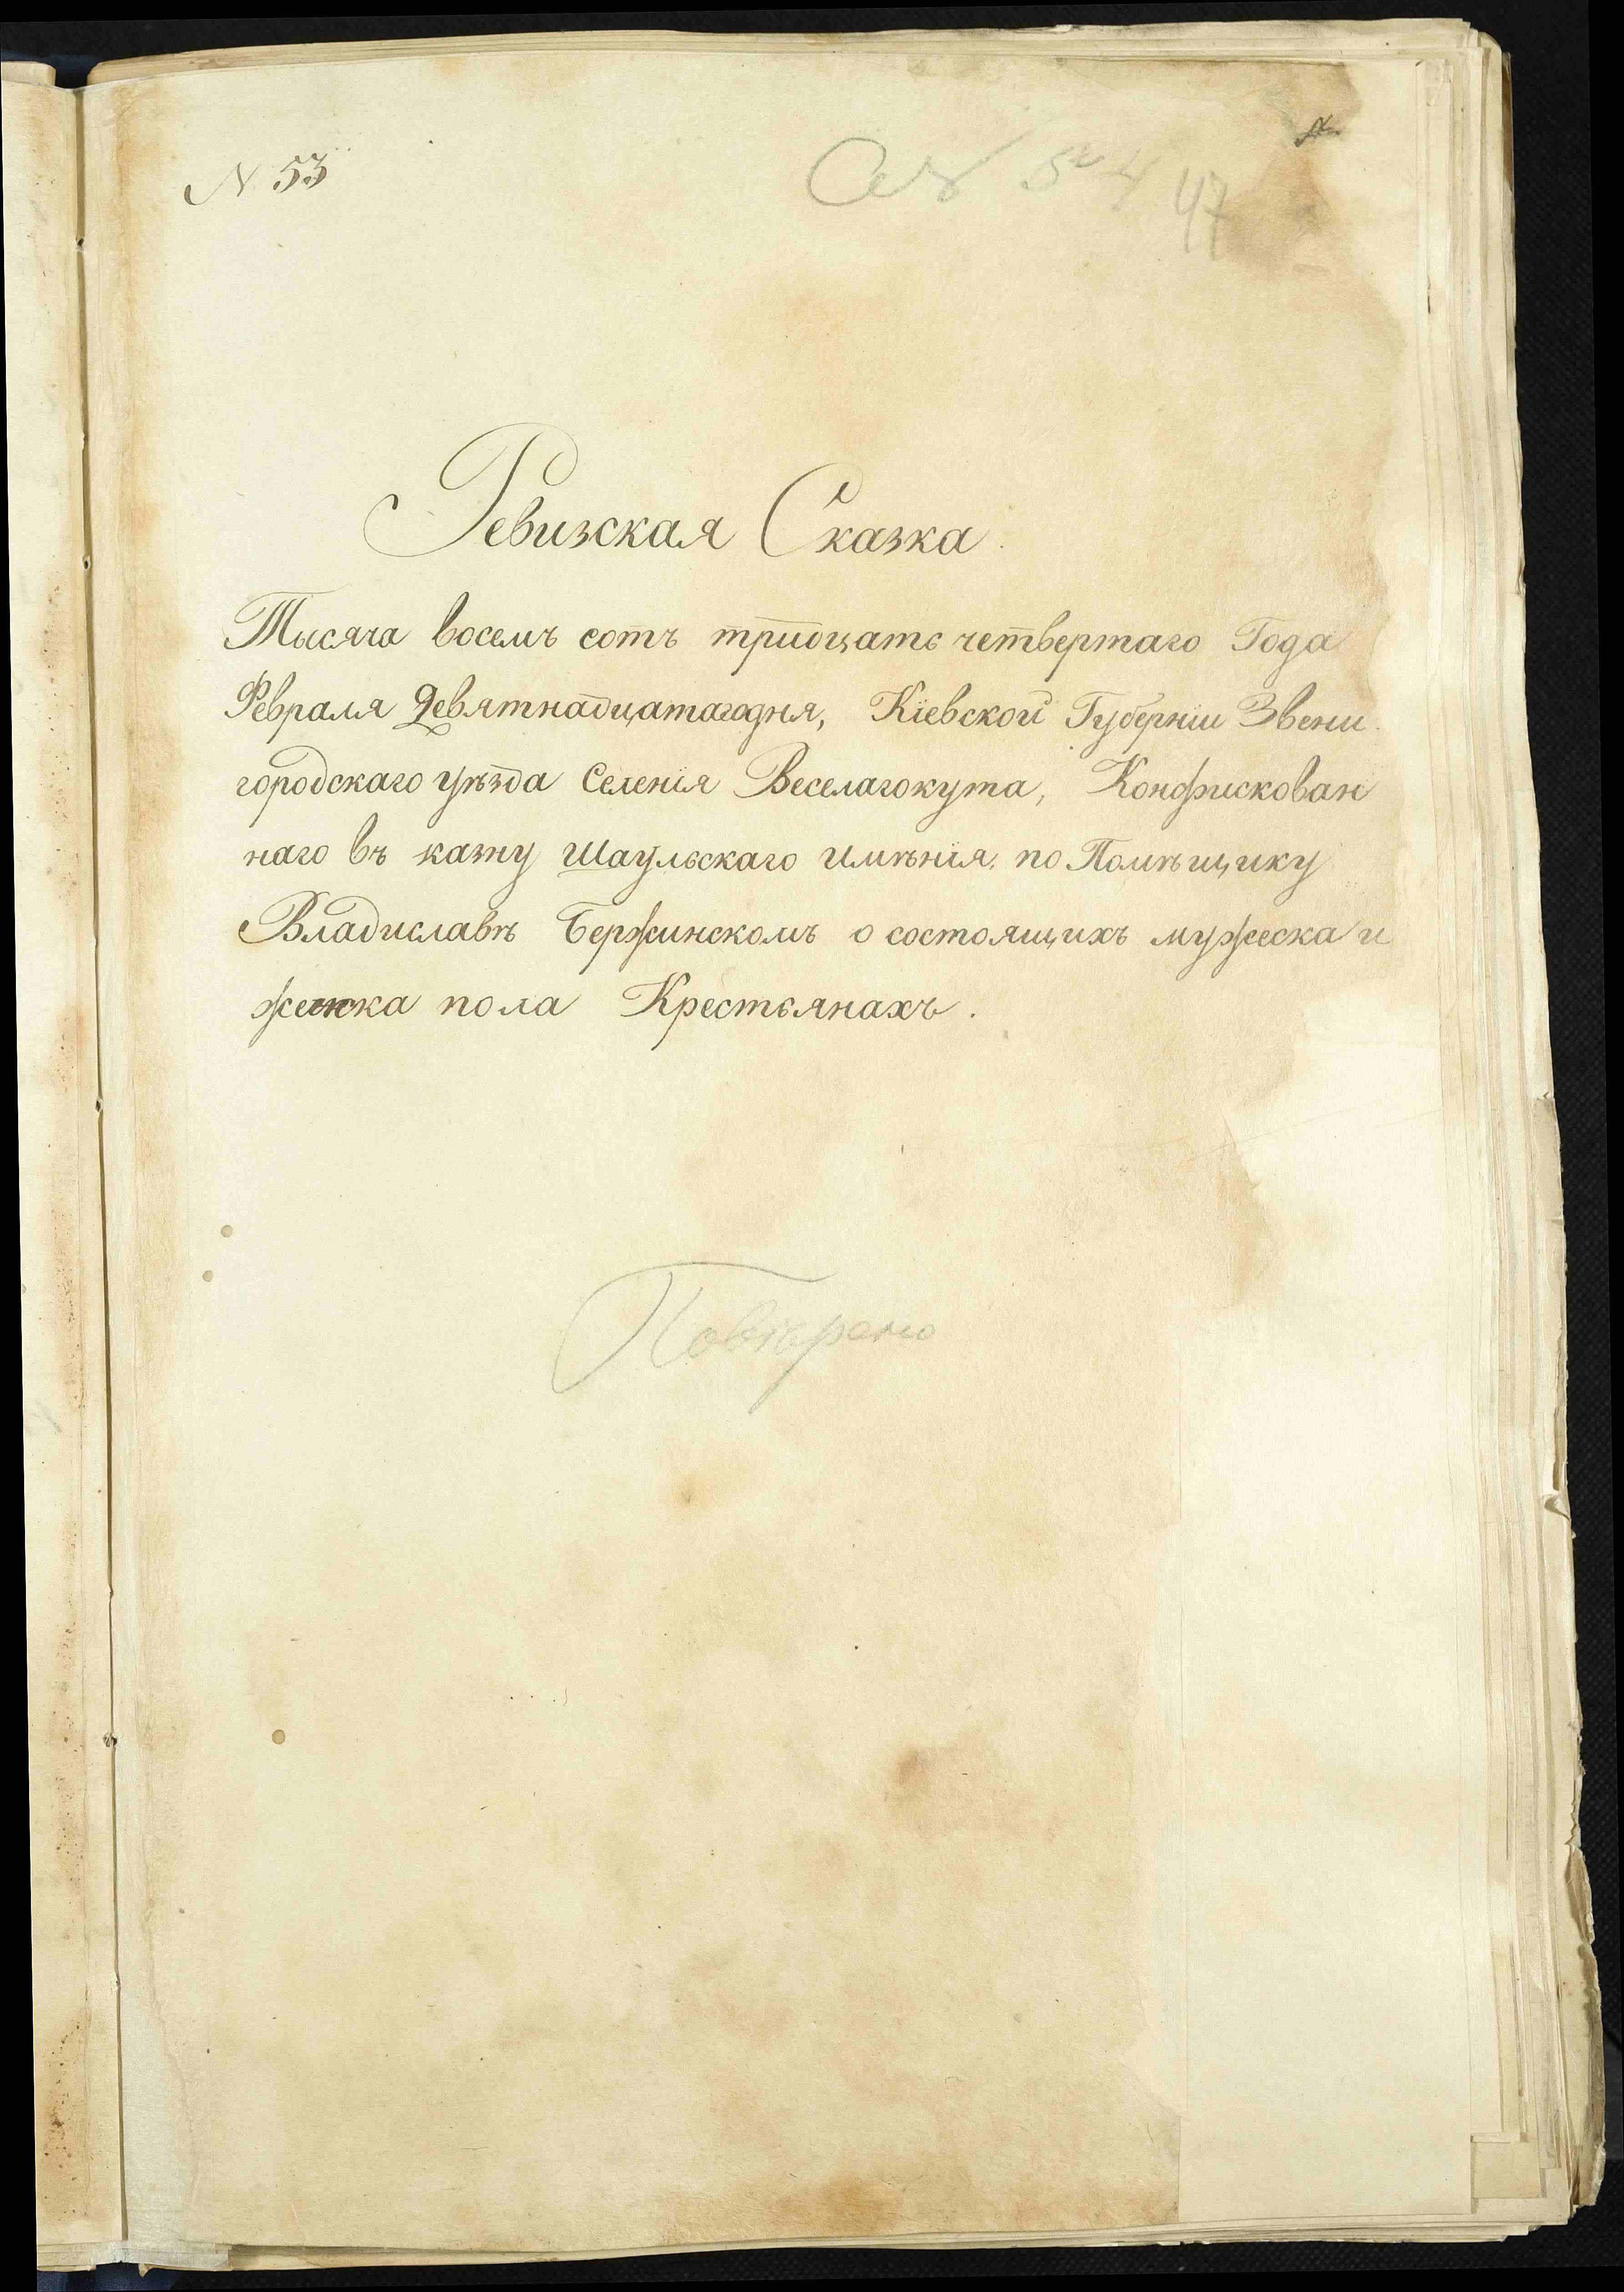 N 53
47
Ревизская Сказка
Тысяча восемъ сотъ тридцать четвертаго Года
Февраля Девятнадцатагодня, Кіевской Губерніи Звени
городскаго уѣзда Селенія Веселагокута, Конфискован
наго въ казну Шаульскаго Имѣнія, по Помѣщику
Владиславѣ Бержинскомъ о состоящихъ мужеска и
женска пола Крестьянахъ.
Повѣрено